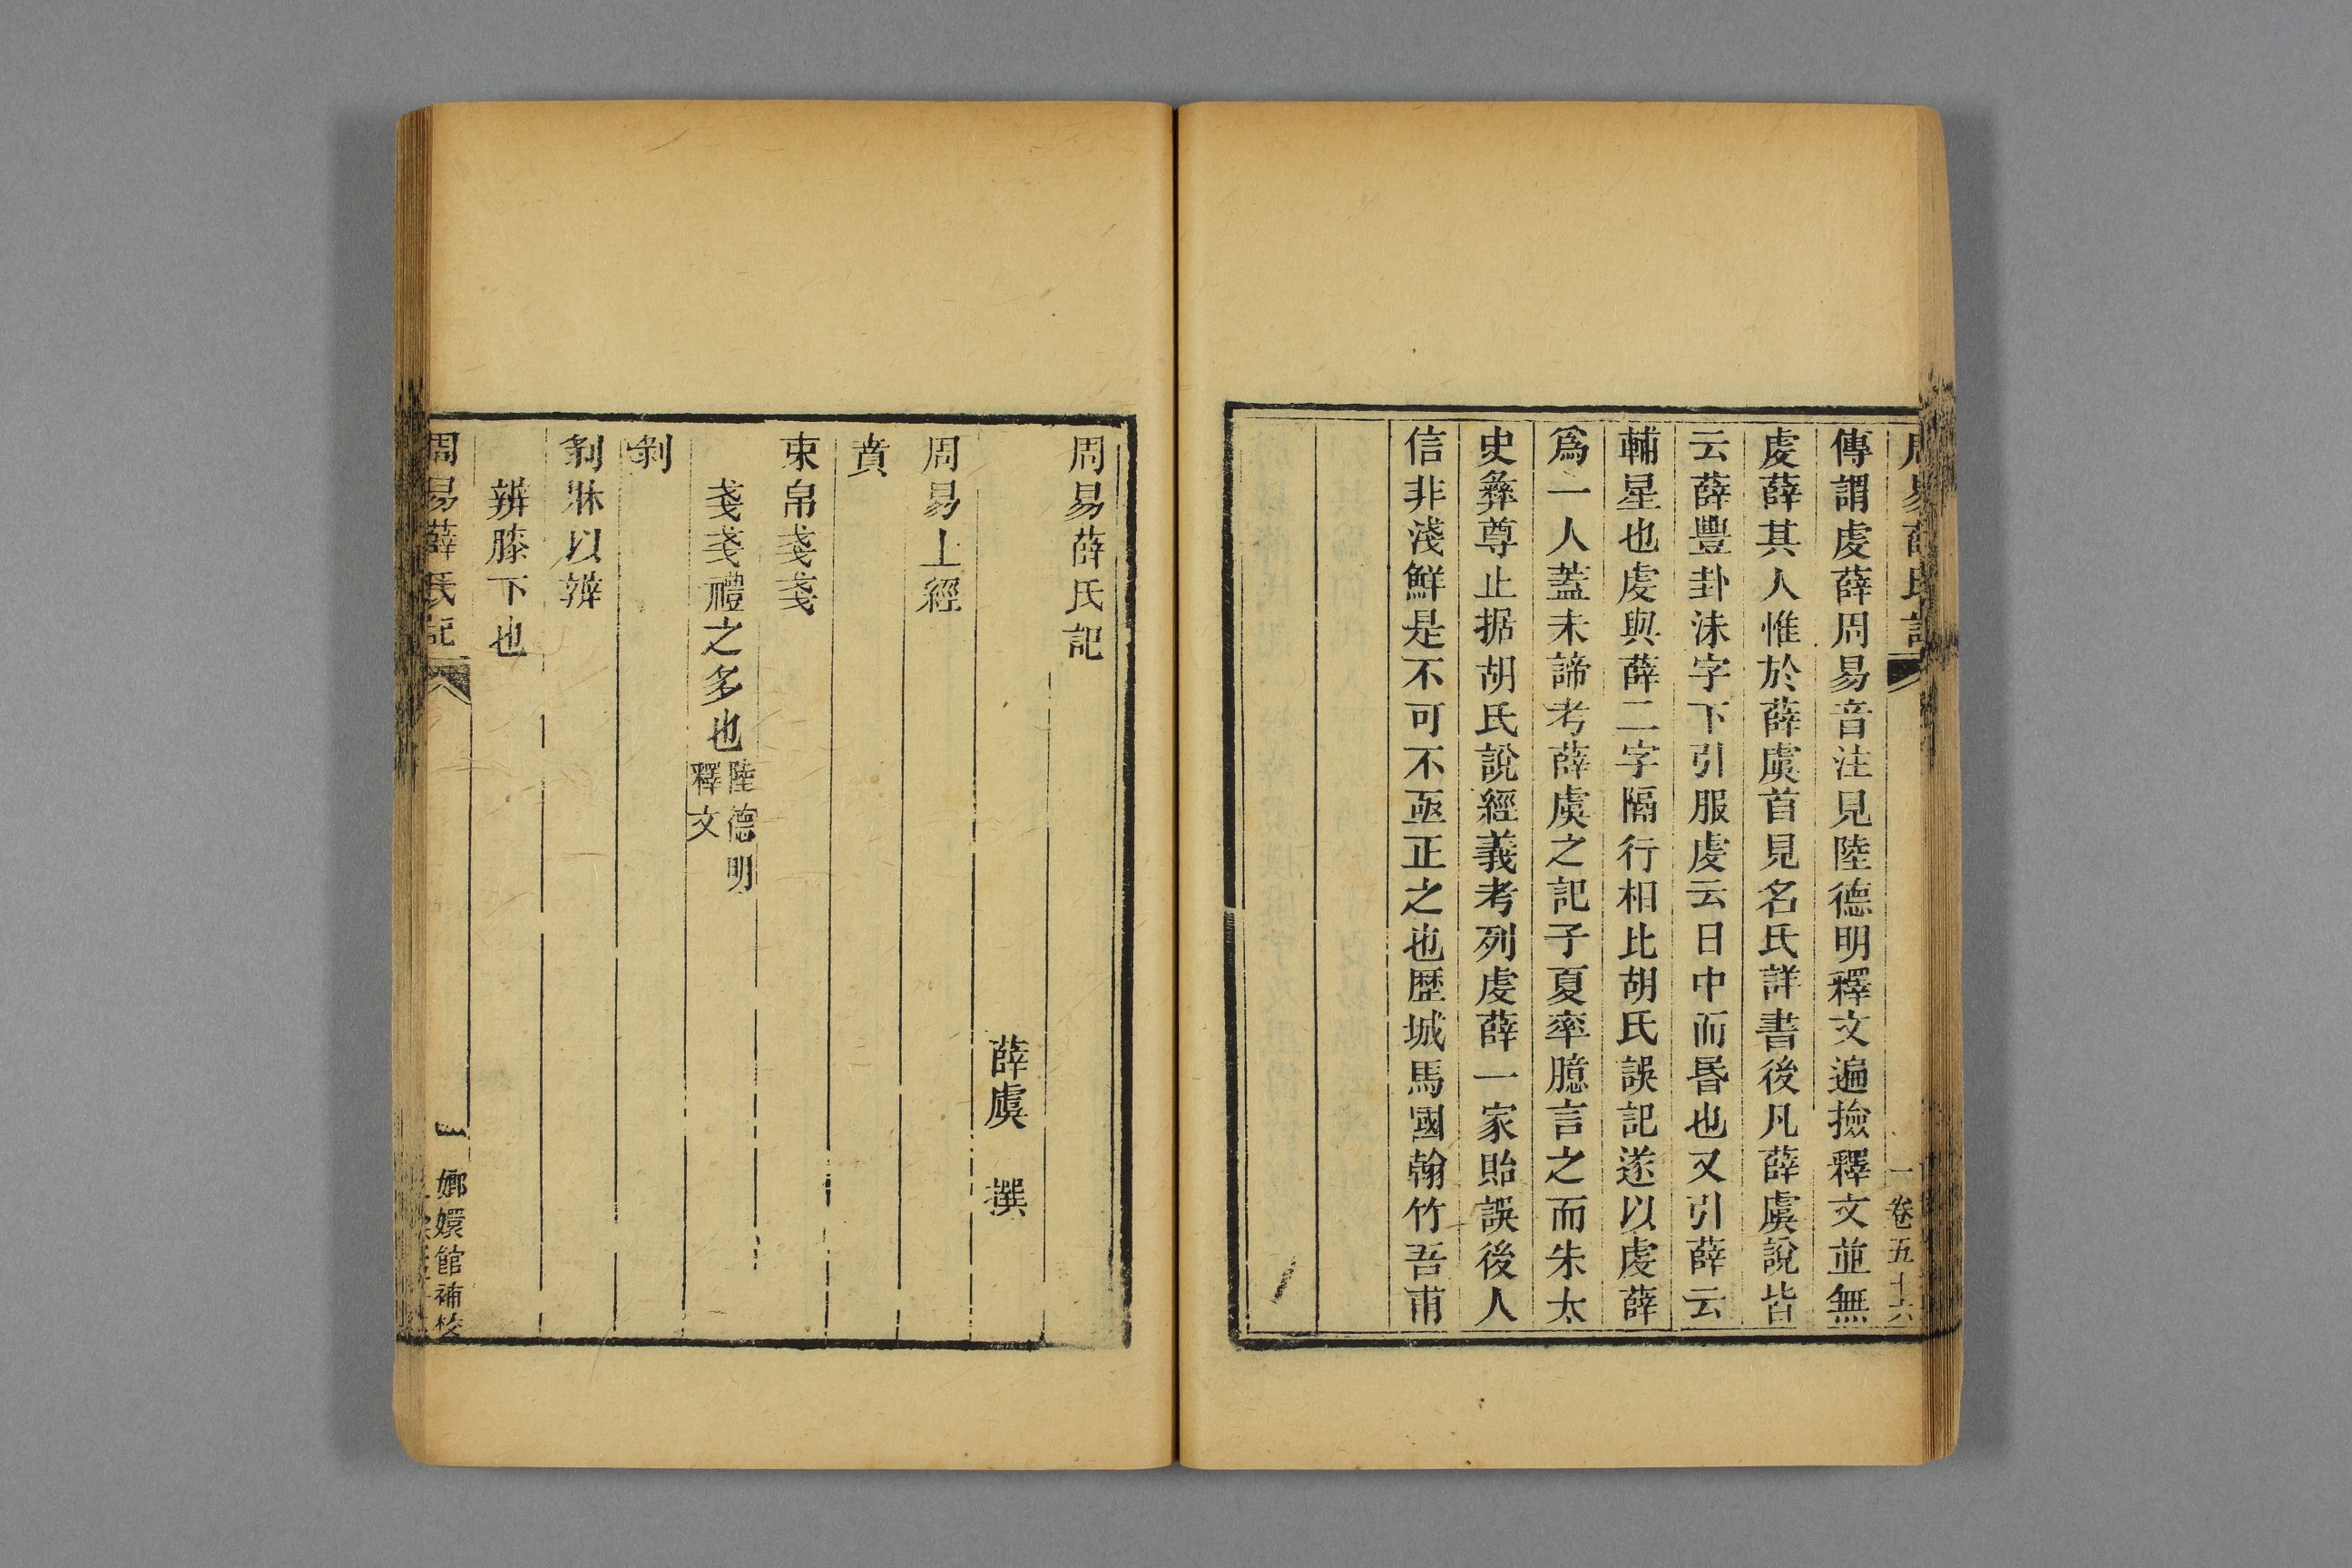 周易薛氏記
一卷五十六
傳謂虔薛周易音注見陸德明釋文遍撿釋文並無
虔薛其人惟於薛虞首見名氏詳書後凡薛虞說皆
云薛豐卦沬字下引服虔云日中而昏也又引薛云
輔星也虔與薛二字隔行相比胡氏誤記遂以虔薛
爲一人蓋未諦考薛虞之記子夏率臆言之而朱太
史彝尊止据胡氏說經義考列虔薛一家貽誤後人
信非淺鮮是不可不亟正之也歷城馬國翰竹吾甫
周易薛氏記
薛虞 撰
周易上經
賁
束帛戔戔
戔戔禮之多也陸德明
釋文
剝
剝牀以辨
辨膝下也
周易薛氏記
一 嫏嬛館補校